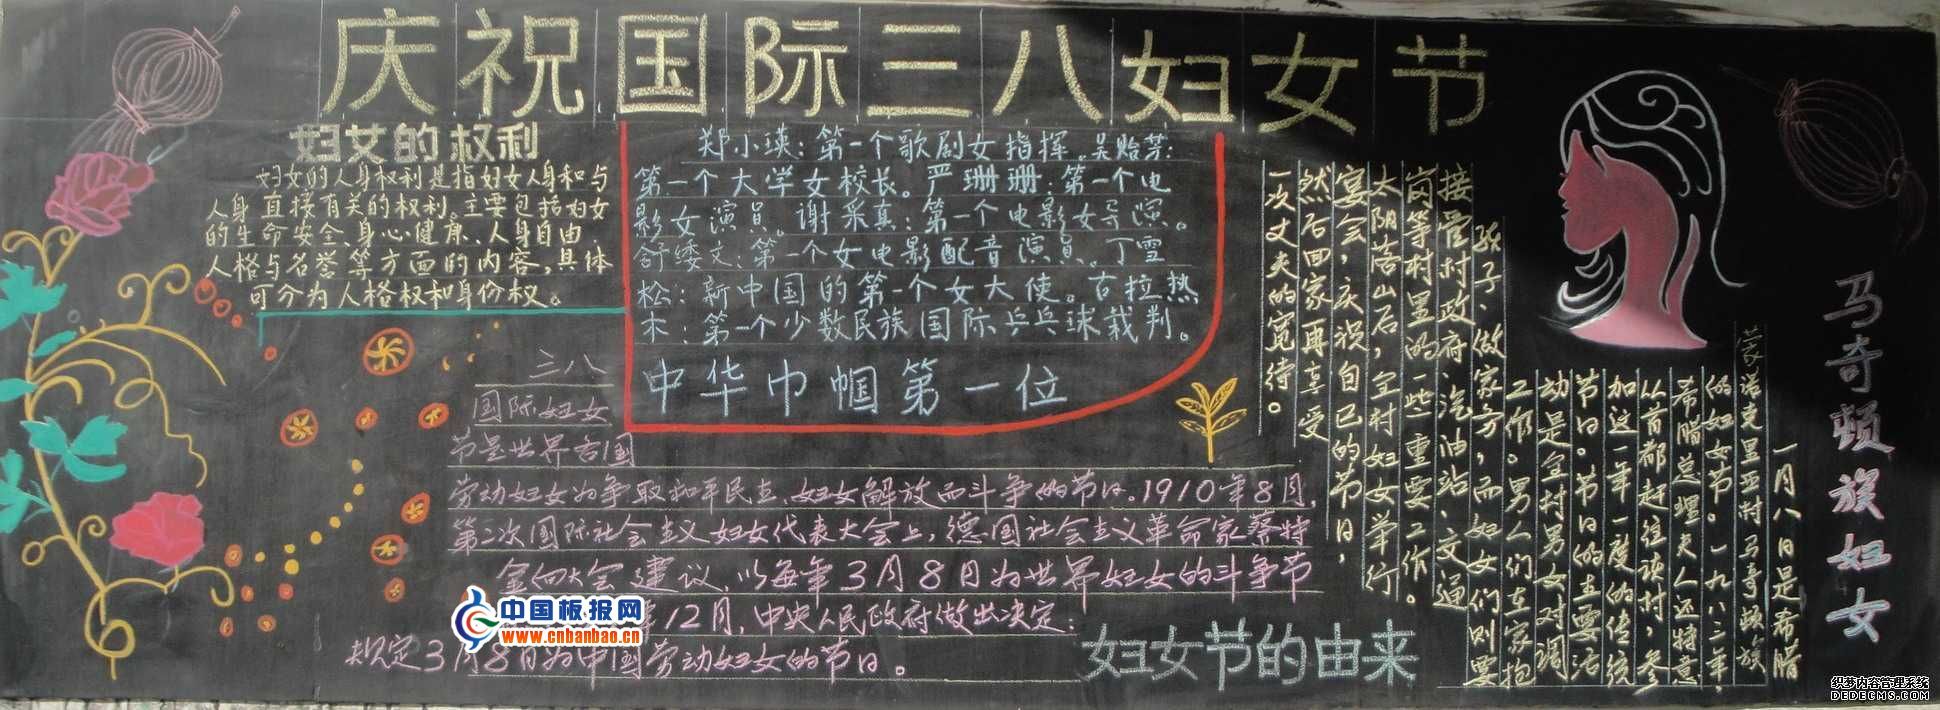 庆祝国际三八妇女节
妇女的权利
妇女的人身权利是指妇女人身和与
人身直接有关的权利。主要包括妇女
的生命安全、身心健康、人身自由
人格与名誉等方面的内容,具体
可分为人格权和身份权。
郑小瑛:第一个歌剧女指挥。吴贻芳:
第一个大学女校长。严珊珊:第一个电
影女演员。谢采真:第一个电影女导演。
舒绣文:第一个女电影配音演员。丁雪
松:新中国的第一个女大使。古拉热
木:第一个少数民族国际乒乓球裁判。
中华巾帼第一位
三八
国际妇女
节是世界各国
劳动妇女为争取和平民主、妇女解放而斗争的节日。1910年8月,
第二次国际社会主义妇女代表大会上,德国社会主义革命家蔡特
金向大会建议,以每年3月8日为世界妇女的斗争节
年12月,中央人民政府做出决定:
规定3月8日为中国劳动妇女的节日。
妇女节的由来
马奇顿族妇女
一月八日是希腊
蒙诺克里亚村马奇顿族
的妇女节。一九八三年,
希腊总理夫人还特意
从首都赶往该村,参
加这一年一度的传统
节日。节日的主要活
动是全村男女对调
工作。男人们在家抱
孩子、做家务,而妇女们则要
接管村政府、汽油站、交通
岗等村里的一些重要工作。
太阴落山后,全村妇女举行
宴会,庆祝自己的节日,
然后回家再享受
一次丈夫的宽待。
中国板报网
www.cnbanbao.cn
织梦内容管理系统
DEDECMS.COM